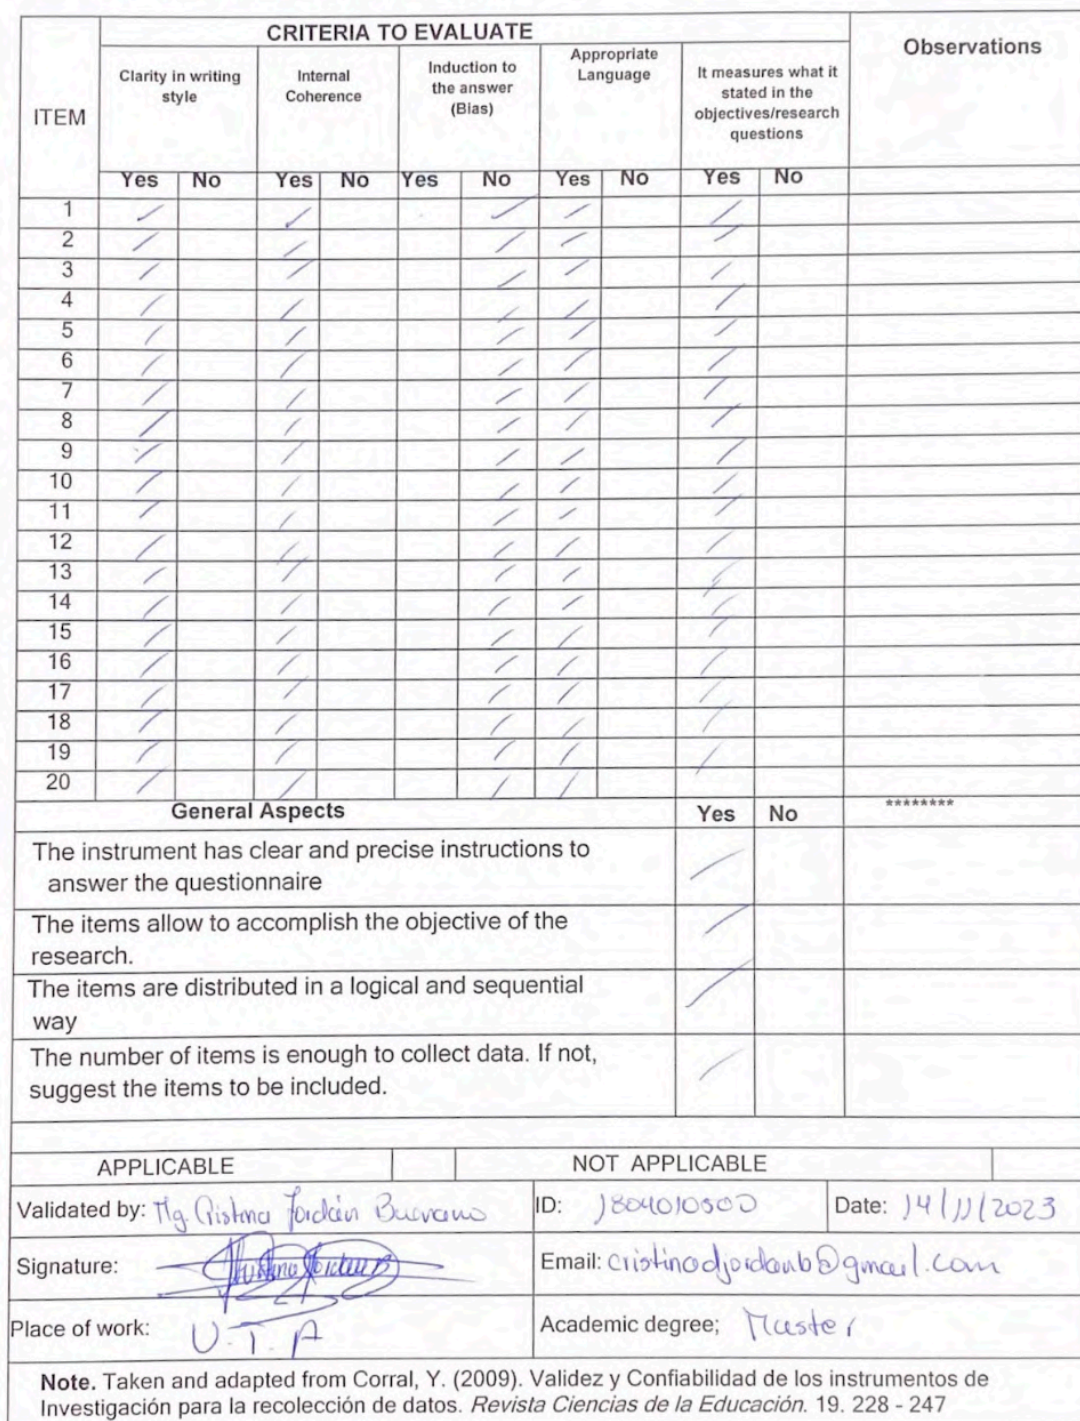 CRITERIA TO EVALUATE
Observations
ITEM
Clarity in writing
style
Internal
Coherence
Induction to
the answer
(Bias)
Appropriate
Language
It measures what it
stated in the
objectives/research
questions
Yes No Yes No Yes No Yes No Yes No
1
2
3
4
5
6
7
8
9
10
11
12
13
14
15
16
17
18
19
20
General Aspects Yes No ********
The instrument has clear and precise instructions to
answer the questionnaire
The items allow to accomplish the objective of the
research.
The items are distributed in a logical and sequential
way
The number of items is enough to collect data. If not,
suggest the items to be included.
APPLICABLE NOT APPLICABLE
Validated by: Mg. Cristina Jordán Buenaño ID: 1804010500 Date: 14/11/2023
Signature: Email: cristinadjordanb@gmail.com
Place of work: U.T.A Academic degree; Master
Note. Taken and adapted from Corral, Y. (2009). Validez y Confiabilidad de los instrumentos de
Investigación para la recolección de datos. Revista Ciencias de la Educación. 19. 228 - 247